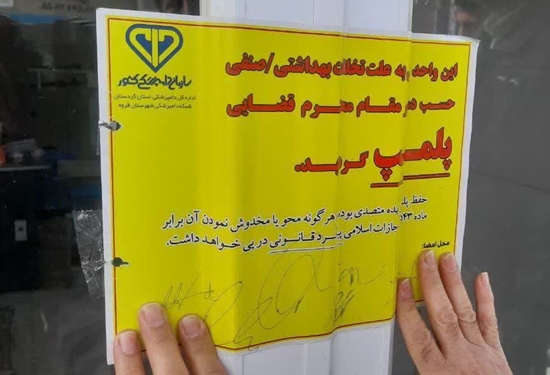 سازمان دامپزشکی کشور
اداره کل دامپزشکی استان کردستان
شبکه دامپزشکی شهرستان قروه
این واحد به علت تخلف بهداشتی/صنفی
حسب د مقام محترم قضایی
پلمپ گردید.
حفظ پل به عهده متصدی بوده هرگونه محو یا مخدوش نمودن آن برابر
ماده ۵۴۳ مجازات اسلامی پیگرد قانونی در پی خواهد داشت.
محل امضاء